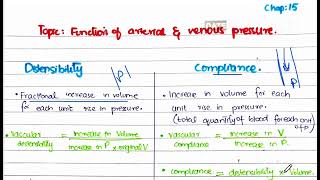 Chap:15
Topic: Function of arterial & venous pressure.
Distensibility
Compliance.
P
V
P
• Fractional increase in volume
for each unit rise in pressure.
• Increase in volume for each
unit rise in pressure.
(total quantity of blood for each
• Vascular distensibility = increase in Volume / increase in P x original V
• vascular compliance = increase in V / Increase in P.
• compliance = distensibility x Volume.